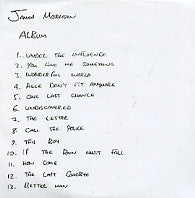 James Morrison
Album
1. Under the influence
2. You give me something
3. Wonderful world
4. Pieces Don't fit anymore
5. One last chance
6. Undiscovered
7. The letter
8. Call the police
9. This boy
10. If the rain must fall
11. How come
12. The last goodbye
13. Better man